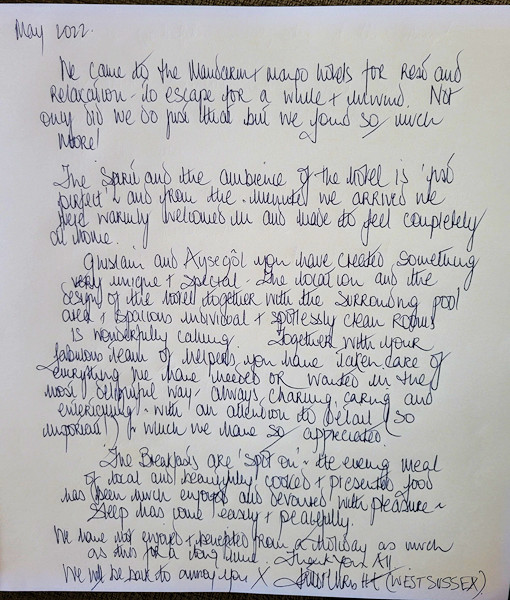 May 2022.
We came to the Mandarin + mango hotels for Rest and
Relaxation - to escape for a while + unwind. Not
only did we do just that but we found so much
more!
The Spirit and the ambience of the hotel is 'just
perfect' and from the minute we arrived we
were warmly welcomed in and made to feel completely
at home.
Ghislain and Aysegöl you have created something
very unique + special - the location and the
design of the hotel together with the surrounding pool
area + spacious individual + spotlessly clean rooms
is wonderfully calming. Together with your
fabulous team of helpers you have taken care of
everything we have needed or wanted in the
most delightful way - always charming, caring and
with an attention to detail (so
important) + which we have so appreciated.
The Breakfasts are 'spot on' - the evening meal
of local and beautifully cooked + presented food
has been much enjoyed and devoured with pleasure ~
Sleep has come easily + peacefully.
We have not enjoyed + benefited from a holiday as much
as this for a long time. Thank you All
We will be back to annoy you X (WEST SUSSEX)